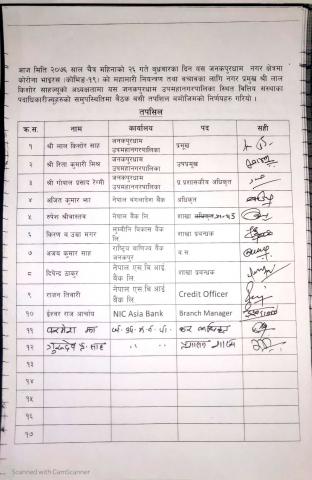 आज मिति २०७६ साल चैत्र महिनाको २६ गते बुधवारका दिन यस जनकपुरधाम नगर क्षेत्रमा
कोरोना भाइरस (कोभिड-१९) को महामारी नियन्त्रण तथा बचावका लागि नगर प्रमुख श्री लाल
किशोर साहज्युको अध्यक्षतामा यस जनकपुरधाम उपमहानगरपालिका स्थित वित्तिय संस्थाका
पदाधिकारीज्यूहरुको समुपस्थितिमा बैठक बसी तपशिल बमोजिमको निर्णयहरु गरियो ।
तपसिल
क्र.स. नाम कार्यालय पद सही
१ श्री लाल किशोर साह जनकपुरधाम उपमहानगरपालिका प्रमुख
२ श्री रिता कुमारी मिश्र जनकपुरधाम उपमहानगरपालिका उपप्रमुख
३ श्री गोपाल प्रसाद रेग्मी जनकपुरधाम उपमहानगरपालिका प्र.प्रशासकीय अधिकृत
४ अजित कुमार झा नेपाल बंगलादेश बैंक अधिकृत
५ रुपेश श्रीवास्तव नेपाल बैंक लि. शाखा
६ किरण व उखा मगर लुम्बीनि विकास बैंक लि. शाखा प्रबन्धक
७ अजय कुमार साह राष्ट्रिय बाणिज्य बैंक जनकपुर व.स.
८ दिपेन्द्र ठाकुर नेपाल एस बि आई बैंक लि. शाखा प्रबन्धक
९ राजन तिवारी नेपाल एस बि आई बैंक लि. Credit Officer
१० ईश्वर राज आर्चाय NIC Asia Bank Branch Manager
११ झा
१२ साह " "
१३
१४
१५
१६
१७
Scanned with CamScanner